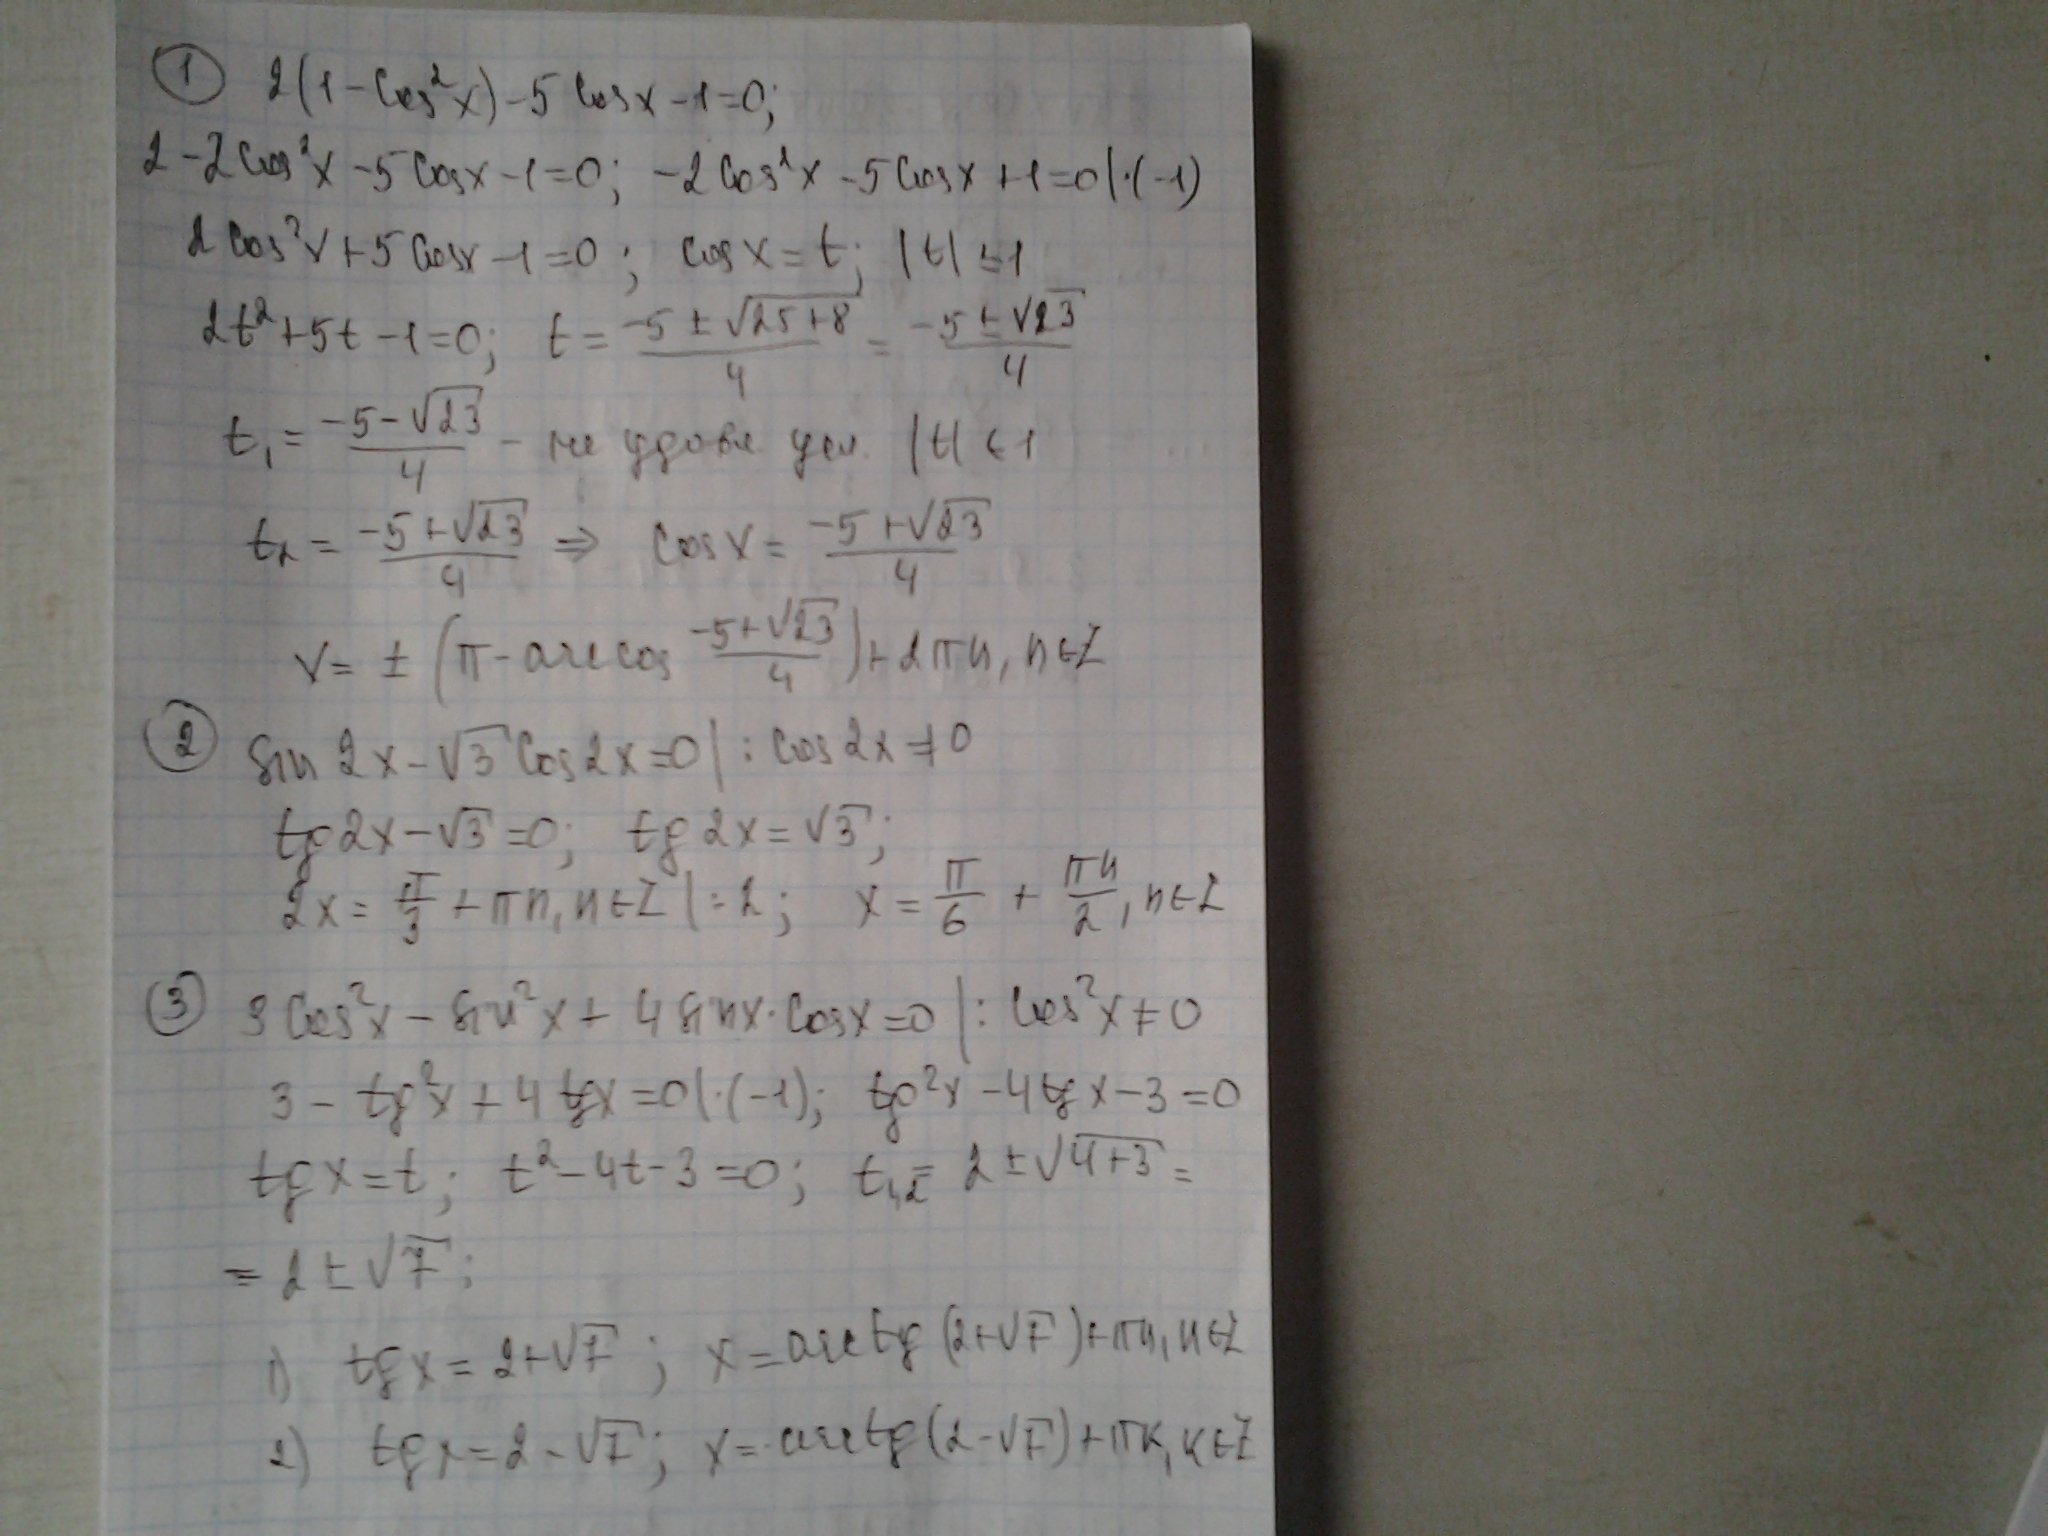 ① 2(1-cos²x)-5cosx-1=0;
2-2cos²x-5cosx-1=0; -2cos²x-5cosx+1=0|·(-1)
2cos²x+5cosx-1=0; cosx=t; |t|≤1
2t²+5t-1=0; t=(-5±√(25+8))/4=(-5±√23)/4
t₁=(-5-√23)/4 - не удовл усл. |t|≤1
t₂=(-5+√23)/4 ⇒ cosx=(-5+√23)/4
x=±(π-arccos (-5+√23)/4)+2πn, n∈Z
② sin2x-√3cos2x=0|:cos2x≠0
tg2x-√3=0; tg2x=√3;
2x=π/3+πn, n∈Z|:2; x=π/6+πn/2, n∈Z
③ 3cos²x-sin²x+4sinx·cosx=0|:cos²x≠0
3-tg²x+4tgx=0|·(-1); tg²x-4tgx-3=0
tgx=t; t²-4t-3=0; t₁,₂=2±√(4+3)=
=2±√7;
1) tgx=2+√7; x=arctg(2+√7)+πn, n∈Z
2) tgx=2-√7; x=arctg(2-√7)+πk, k∈Z